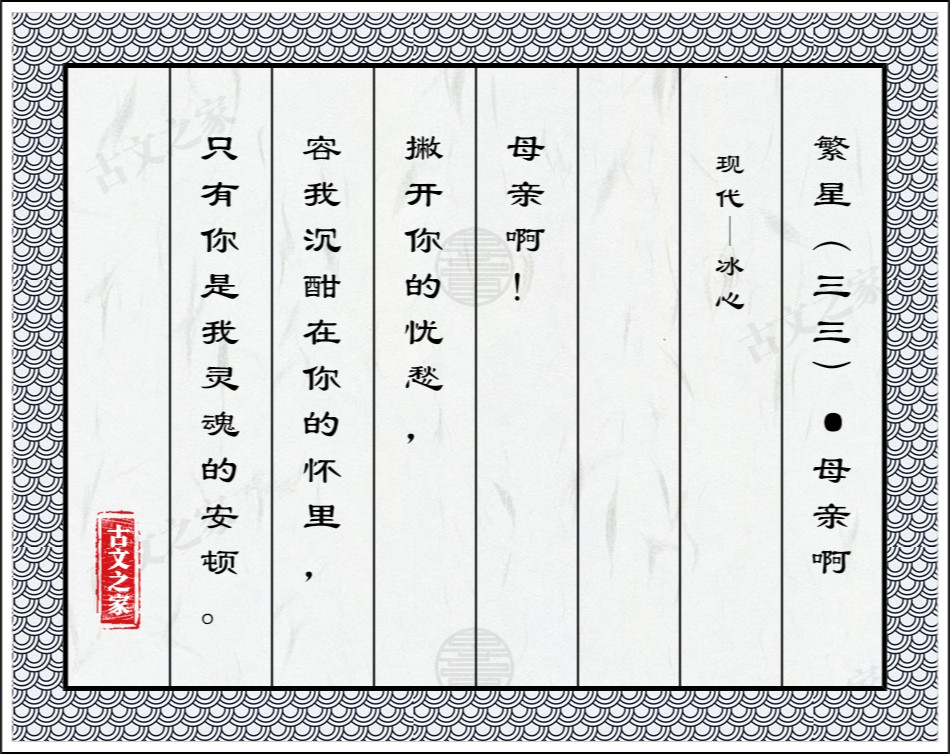 繁星（三三）●母亲啊
现代—冰心
母亲啊！
撇开你的忧愁，
容我沉酣在你的怀里，
只有你是我灵魂的安顿。
古文之家
古文之家
古文之家